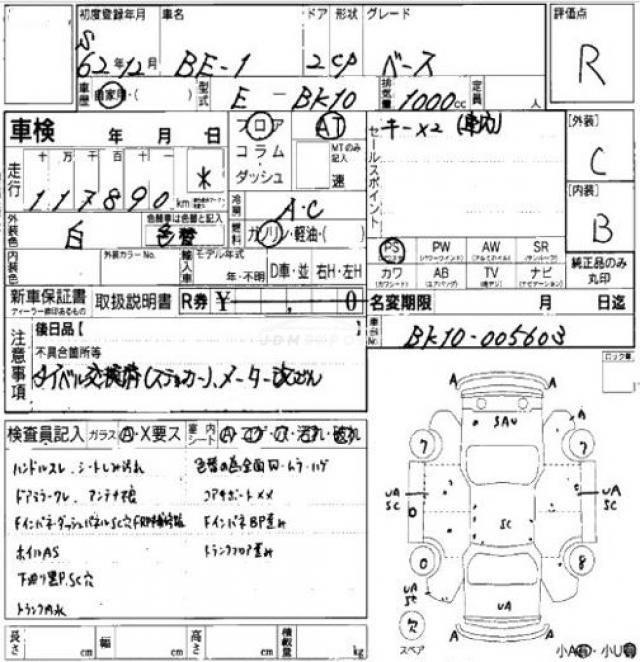 初度登録年月 車名 ドア 形状 グレード 評価点
S
62年12月 BE-1 2 CP ベース R
車歴 自家用・( ) 型式 E - BK10 排気量 1000cc 定員 人
車検 年 月 日 フロア AT キー×2 [外装]
コラム MTのみ記入 C
ダッシュ 速 セールスポイント
走行 十 万 千 百 十 一 [内装]
117890 km * B
冷房 A・C
外装色 白 色替車は色替と記入 色替 燃料 ガソリン・軽油・( )
PS PW AW SR
(パワーウインド) (アルミホイル) (サンルーフ)
内装色 外装カラーNo. 輸入車 モデル年式 年・不明 D車・並 右H・左H
カワ AB TV ナビ 純正品のみ丸印
(カワシート) (エアバッグ) (ナビゲーション)
新車保証書 取扱説明書 R券 ¥ 0 名変期限 月 日迄
ディーラー捺印あるもの
注意事項 後日品【 車台No. BK10-005603
不具合箇所等
タイベル交換済(ステッカー)、メーター改ざん
検査員記入 ガラス A・X要ス 室内シート A・コゲ・穴・汚れ・破れ
ハンドルスレ、シートしみ汚れ 色替の為全面W・ムラ・ハゲ
ドアミラークレ、アンテナ コアサポートXX
FインパネBP歪み
ホイルAS トランクフロア歪み
下廻り P.SC穴
トランク内水
ロック車
A A
SAU
A A
7 7
UA SC UA SC
0 SC
0 8
UA SC UA
欠 A A
スペア 小A・小U
長さ cm 幅 cm 高さ cm 積載量 kg